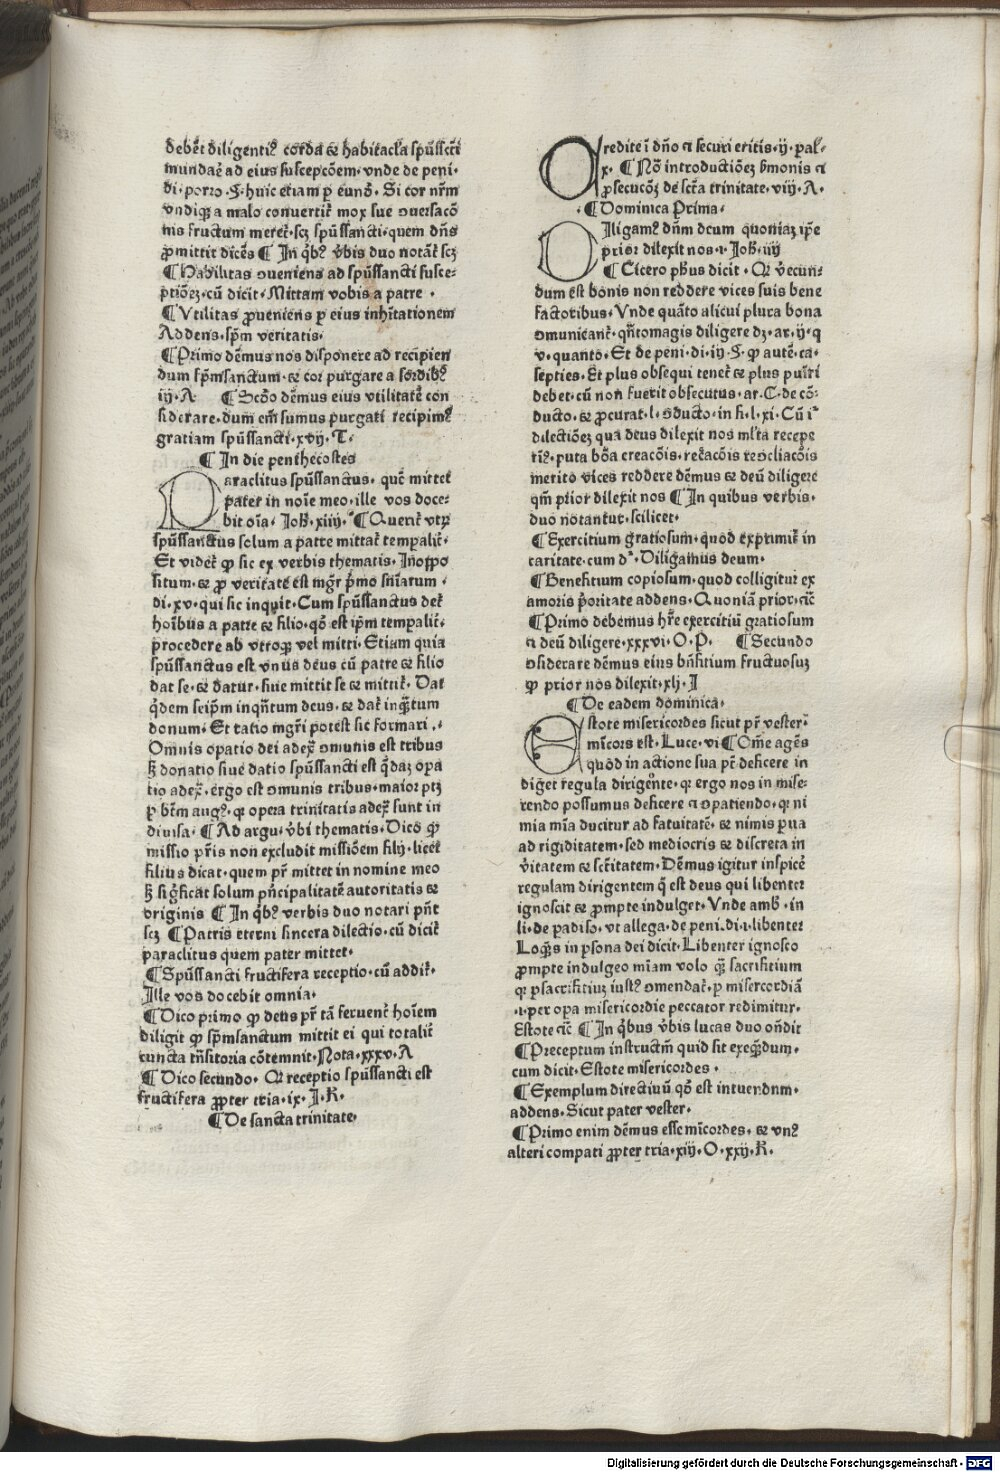 debet diligentiꝰ corda ⁊ habitacl'a spūssctī
mundaē ad eius suscepcōem· vnde de peni·
di·porro·§·huic etiam p eundē· Si cor nr̄m
vndiqꝫ a malo conuertit̄ mox sue ꝯuersacō
nis fructum meret̄·scꝫ spūssancti·quem dn̄s
ꝓmittit dicēs ¶ In qb̄ꝫ v̄bis duo notāt̄ scꝫ
¶ Habilitas ꝯueniens ad spūssancti susce-
ptiōeꝫ·cū dicit·Mittam vobis a patre ·
¶Vtilitas ꝓueniens p eius inhitationem
Addens·spm̄ veritatis·
¶Primo dēmus nos disponere ad recipien
dum spm̄sanctum·⁊ cor purgare a sordibꝫ
iij·A· ¶ Scd̄o dēmus eius vtilitatē con
siderare·dum em̄ sumus purgati recipimꝰ
gratiam spūssancti·xvij·T·
¶ In die penthecostes
Paraclitus spūssanctus· quē mittet
pater in noīe meo·ille vos doce-
bit oīa· Joh̄·xiiij·¶Querit̄ vtꝝ
spūssanctus solum a patre mittat̄ temꝑalit̄·
Et videt̄ ꝙ sic ex verbis thematis· In oppo
situm·⁊ ꝓ veritate est mgr̄ pmo sn̄iarum ·
di·xv·qui sic inquit·Cum spūssanctus det̄
hoībus a patre ⁊ filio·qd̄ est ipm̄ temꝑalit̄·
procedere ab vtroqꝫ vel mitti·Etiam quia
spūssanctus est vnus deus cū patre ⁊ filio
dat se·⁊ datur·siue mittit se ⁊ mittit̄· Dat
q̄dem seipm̄ inqn̄tum deus·⁊ dat̄ inqn̄tum
donum· Et ratio mgri potest sic formari ·
Omnis opatio dei adextꝰ ꝯmunis est tribus
ꝫ donatio siue datio spūssancti est q̄daꝫ opa
tio adext̄·ergo est ꝯmunis tribus·maior ptꝫ
p btm̄ augꝰ·qꝛ opera trinitatis adext̄ sunt in
diuisa·¶Ad argu·v̄bi thematis·Dicō ꝙ
missio pr̄is non excludit missiōem filij·licet
filius dicat·quem pr̄ mittet in nomine meo
ꝫ sigficat solum pn̄cipalitatē autoritatis ⁊
originis ¶ In qb̄ꝫ verbis duo notari pn̄t
scꝫ ¶Patris eterni sincera dilectio·cū dicit̄
paraclitus quem pater mittet·
¶Spūssancti fructifera receptio·cū addit̄·
Ille vos docebit omnia·
¶Dico primo ꝙ deus pr̄ tā feruent̄ hoīem
diligit ꝙ spm̄sanctum mittit ei qui totalit̄
cuncta tn̄sitoria cōtemnit·Nota·xxxv·A
¶Dico secundo· Qꝛ receptio spūssancti est
fructifera ꝓpter tria·ix·J·K·
¶De sancta trinitate·
Credite ī dn̄o ⁊ securi eritis·ij·pal·
x· ¶ Nō introductiōeꝫ sm̄onis ⁊
ꝓsecucōꝫ de sctā trinitate·viij·A·
·¶Dominica Prima·
Diligamꝰ dn̄m deum quoniaꝫ ip̄e
prior dilexit nos·1·Joh̄·iiij
¶ Cicero phūs dicit· Qꝛ v̄ecun-
dum est bonis non reddere vices suis bene
factoribus·Vnde quāto alicui plura bona
ꝯmunicant̄·qn̄tomagis diligere dꝫ·ar·ij·q
v·quanto·Et de peni·di·iij·§·ꝙ autē·ca·
septies·Et plus obsequi tenet̄ ⁊ plus puīri
debet·cū non fuerit obsecutus·ar·C·de cō-
ducto·⁊ ꝓcurat·l·ꝯducto·in fi·l·xi·Cū iᵃ
dilectiōeꝫ qua deus dilexit nos ml'ta recepe
rīꝰ·puta bōa creacōis·recacōis recōcliacōis
merito vices reddere dēmus ⁊ deū diligere
qm̄ prior dilexit nos ¶In quibus verbis·
duo notantur·scilicet·
¶Exercitium gratiosum·quod exprimit̄ in
caritate·cum dᵗ·Diligamus deum·
¶Benefitium copiosum·quod colligitur ex
amoris p̄oritate addens·Quoniā prior·⁊c
¶Primo debemus hr̄e exercitiū gratiosum
⁊ deū diligere·xxxvi·O·P· ¶Secundo
ꝯsiderare dēmus eius bn̄fitium fructuosuꝫ
ꝙ prior nos dilexit·xlj·J
¶De eadem dominica·
Estote misericordes sicut pr̄ vester
mīcors est·Luce·vi¶Om̄e agēs
quōd in actione sua pt̄ deficere in
diget regula dirigēte·qꝛ ergo nos in mise-
rendo possumus deficere ⁊ ꝯpatiendo·qꝛ ni
mia mīa ducitur ad fatuitatē·⁊ nimis pua
ad rigiditatem·sed mediocris ⁊ discreta in
v̄itatem ⁊ sctītatem·Dēmus igitur inspicē
regulam dirigentem q̄ est deus qui libenter
ignoscit ⁊ ꝓmpte indulget·Vnde amb̄·in
li·de padiso·vt allega·de peni·di·1·libenter
Loqꝰs in ꝑsona dei dicit·Libenter ignosco
ꝓmpte indulgeo mīam volo qꝫ sacrifitium
qꝛ ꝑ sacrifitiuꝫ iustꝰ ꝯmendat̄·ꝑ misercordiā
·1·per opa misericordie peccator redimitur·
Estote ⁊c ¶In qb̄us v̄bis lucas duo on̄dit
¶Preceptum instructm̄ quid sit exeqn̄dum·
cum dicit·Estote misericordes·
¶Exemplum directiuū qd̄ est intuendum·
addens·Sicut pater vester·
¶Primo enim dēmus esse mīcordes·⁊ vnꝰ
alteri compati ꝓpter tria·xiij·O·xxij·K·
Digitalisierung gefördert durch die Deutsche Forschungsgemeinschaft - DFG